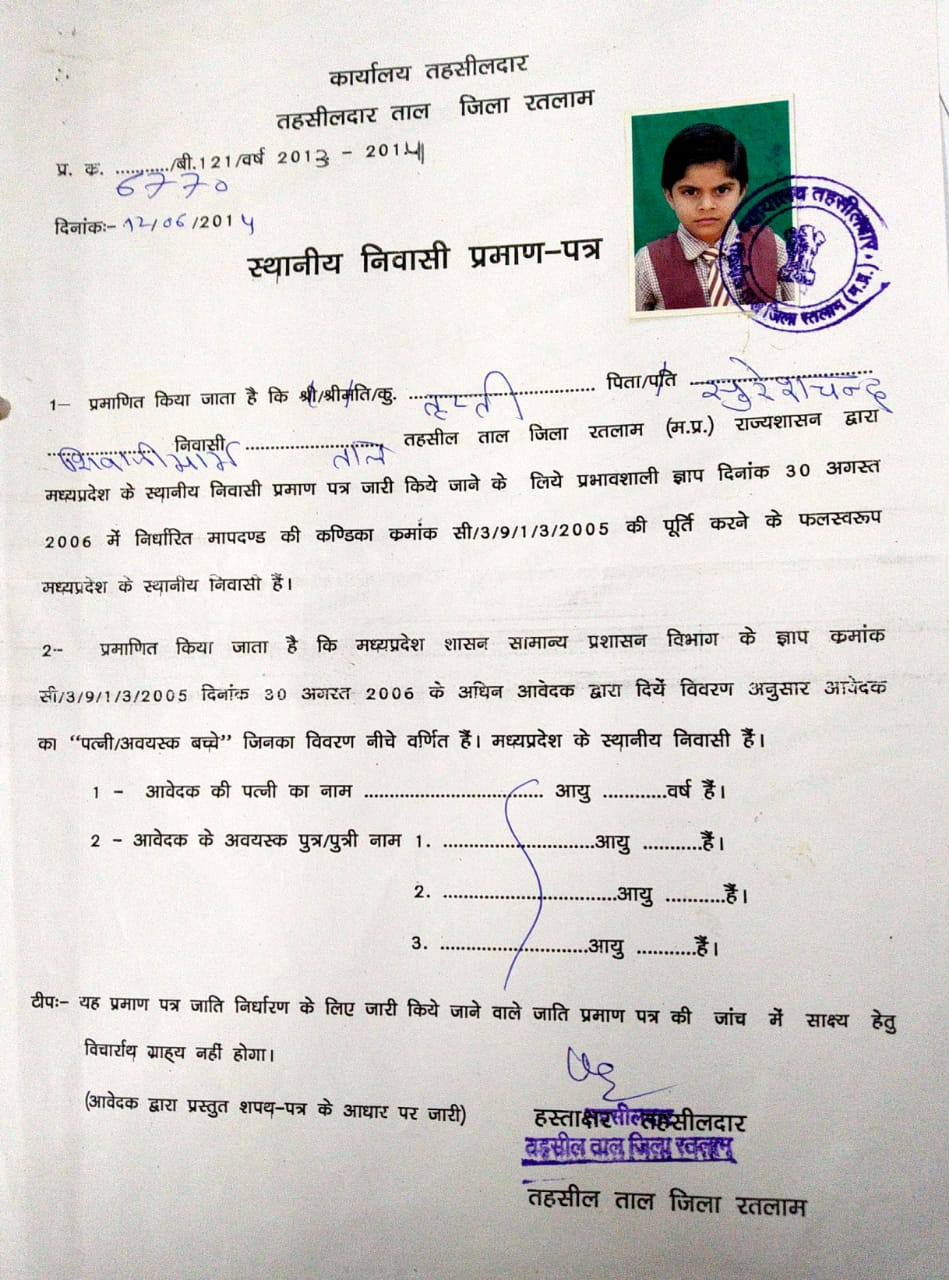 कार्यालय तहसीलदार
तहसीलदार ताल जिला रतलाम
प्र. क. ............/बी.121/वर्ष 2013 - 2014
6770
दिनांकः- 12/06/2014
स्थानीय निवासी प्रमाण-पत्र
1— प्रमाणित किया जाता है कि श्री/श्रीमति/कु. तृप्ती पिता/पति सुरेशचन्द्र
शिवाजी मार्ग निवासी ताल तहसील ताल जिला रतलाम (म.प्र.) राज्यशासन द्वारा
मध्यप्रदेश के स्थानीय निवासी प्रमाण पत्र जारी किये जाने के लिये प्रभावशाली ज्ञाप दिनांक 30 अगस्त
2006 में निर्धारित मापदण्ड की कण्डिका क्रमांक सी/3/9/1/3/2005 की पूर्ति करने के फलस्वरूप
मध्यप्रदेश के स्थानीय निवासी हैं।
2-- प्रमाणित किया जाता है कि मध्यप्रदेश शासन सामान्य प्रशासन विभाग के ज्ञाप क्रमांक
सी/3/9/1/3/2005 दिनांक 30 अगस्त 2006 के अधिन आवेदक द्वारा दियें विवरण अनुसार आवेदक
का “पत्नी/अवयस्क बच्चे” जिनका विवरण नीचे वर्णित हैं। मध्यप्रदेश के स्थानीय निवासी हैं।
1 - आवेदक की पत्नी का नाम .................................. आयु ............वर्ष हैं।
2 - आवेदक के अवयस्क पुत्र/पुत्री नाम 1. .............................आयु ...........हैं।
2. .................................आयु ...........हैं।
3. ............................आयु ...........हैं।
टीपः- यह प्रमाण पत्र जाति निर्धारण के लिए जारी किये जाने वाले जाति प्रमाण पत्र की जांच में साक्ष्य हेतु
विचार्राथ ग्राह्य नहीं होगा।
(आवेदक द्वारा प्रस्तुत शपथ-पत्र के आधार पर जारी)
हस्ताक्षर तहसीलदार
तहसीलदार
तहसील ताल जिला रतलाम
तहसील ताल जिला रतलाम